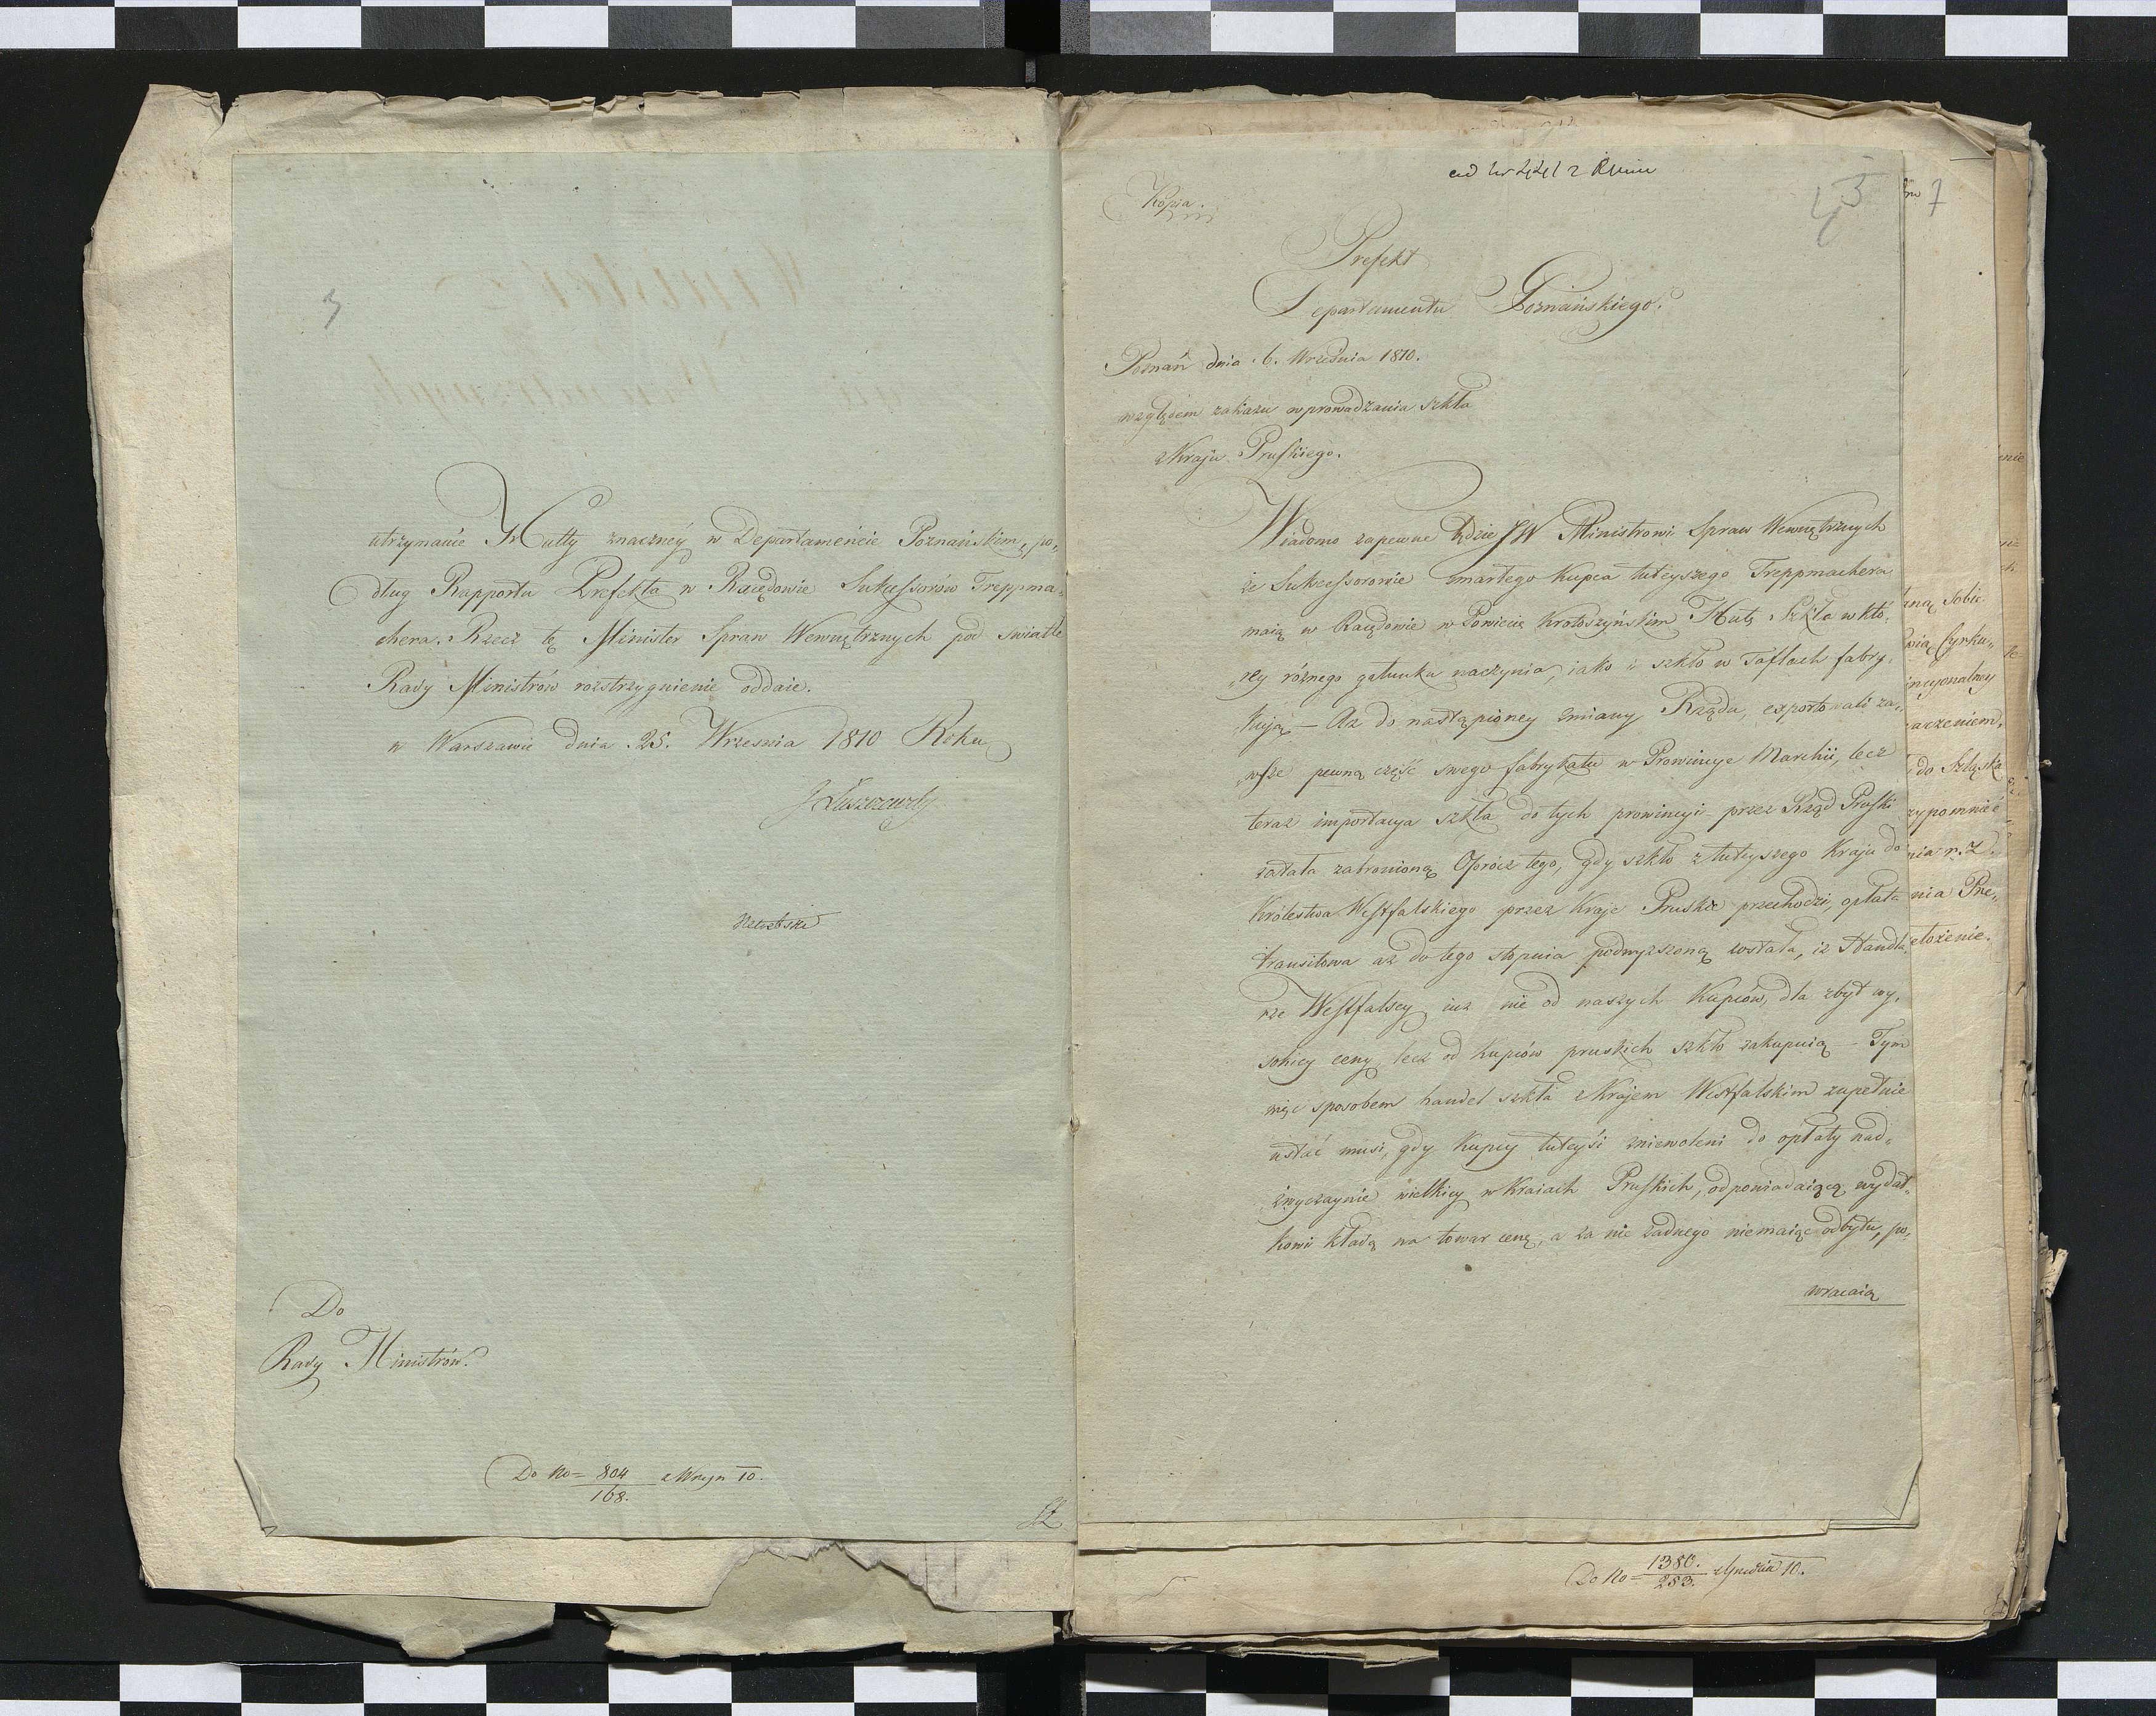 3
utrzymanie Hutty znaczney w Departamencie Poznańskim, po„
dług Rapportu Prefekta w Racędowie Sukcessorów Treppma„
chera. Rzecz tę Minister Spraw Wewnętrznych pod światłe
Rady Ministrów rozstrzygnienie oddaie.
w Warszawie dnia 25. Września 1810 Roku
J Łuszczewsky
Do
Rady Ministrów.
Do No 804/168. z Wrześn 10.
Kópia.
5
Prefekt
Departamentu Poznańskiego.
Poznań dnia 6. Września 1810.
względem zakazu wprowadzania szkła
z Kraju Pruskiego.
Wiadomo zapewne będzie JW Ministrowi Spraw Wewnętrznych
że Sukcessorowie zmarłego Kupca tuteyszego Treppmachera
maią w Racędowie w Powiecie Krotoszyńskim Hutę Szkła w któ„
„rey różnego gatunku naczynia, iako i szkło w Taflach fabry„
kują — Aż do nastąpioney zmiany Rządu, exportowali za„
„wsze pewną część swego fabrykatu w Prowincye Marchii, lecz
teraz importacya szkła do tych prowincyi przez Rząd Pruski
została zabronioną. Oprócz tego, gdy szkło z tuteyszego Kraju do
Królestwa Westfalskiego przez Kraje Pruskie przechodzi, opłata
transitowa aż do tego stopnia podwyższoną została, iż Handla„
rze Westfalscy iuż nie od naszych Kupców, dla zbyt wy„
sokiey ceny, lecz od Kupców pruskich szkło zakupuią — Tym
więc sposobem handel szkła z Krajem Westfalskim zupełnie
ustać musi, gdy Kupcy tuteyśi zniewoleni do opłaty nad„
zwyczaynie wielkiey w Kraiach Pruskich, odpowiadaiącą wydat„
kowi kładą na towar cenę, a za nic żadnego niemaiąc odbytu, po„
wracaią
7
Do No 1380./253. z Grudnia 10.